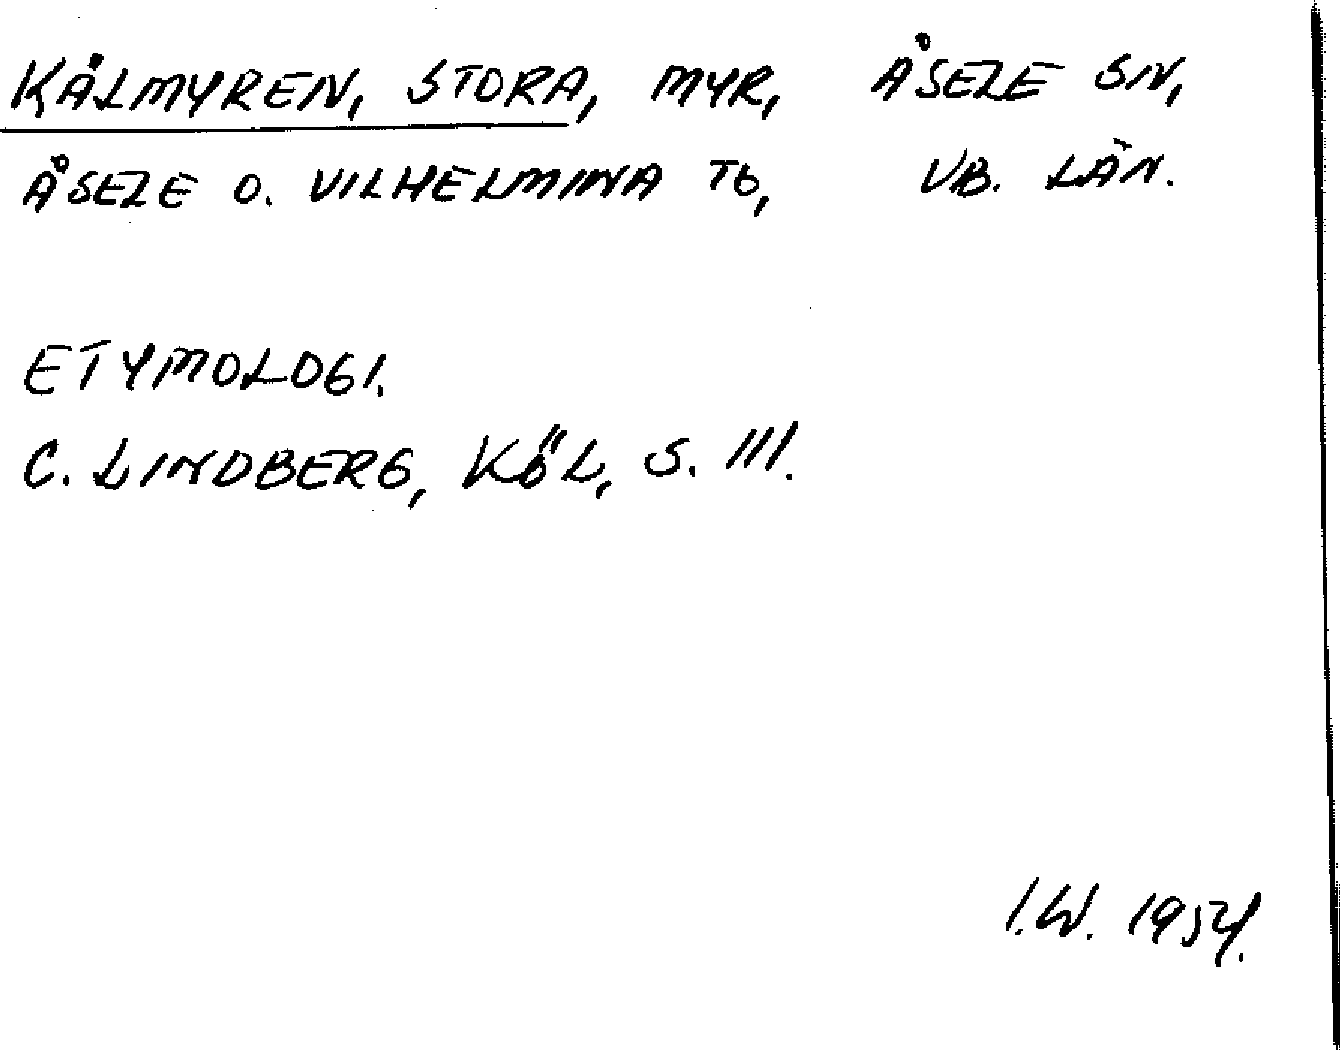 KÅLMYREN, STORA, MYR, ÅSELE SN,
ÅSELE O. VILHELMINA TG, VB. LÄN.
ETYMOLOGI.
C. LINDBERG, KÖL, S. 111.
I.W. 1954.